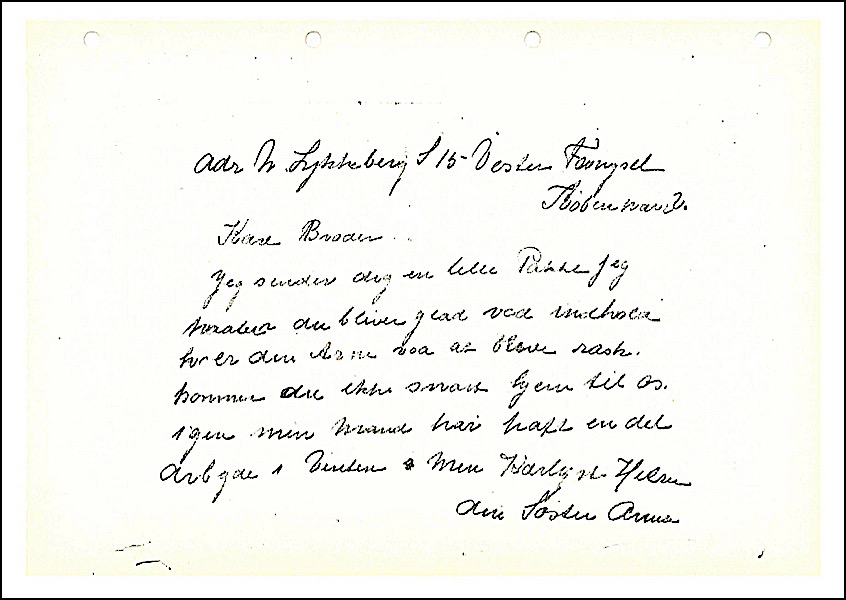 Adr N. Lykkeberg S 15 Vester Fængsel
København V.
Kære Broder
Jeg sender dig en lille Pakke jeg
du bliver glad ved indhold
er din Arm ved at blive rask.
kommer du ikke snart hjem til os.
igen min Mand har haft en del
Arbejde i Vinter Men Kærligst Hilsen
din Søster Anna